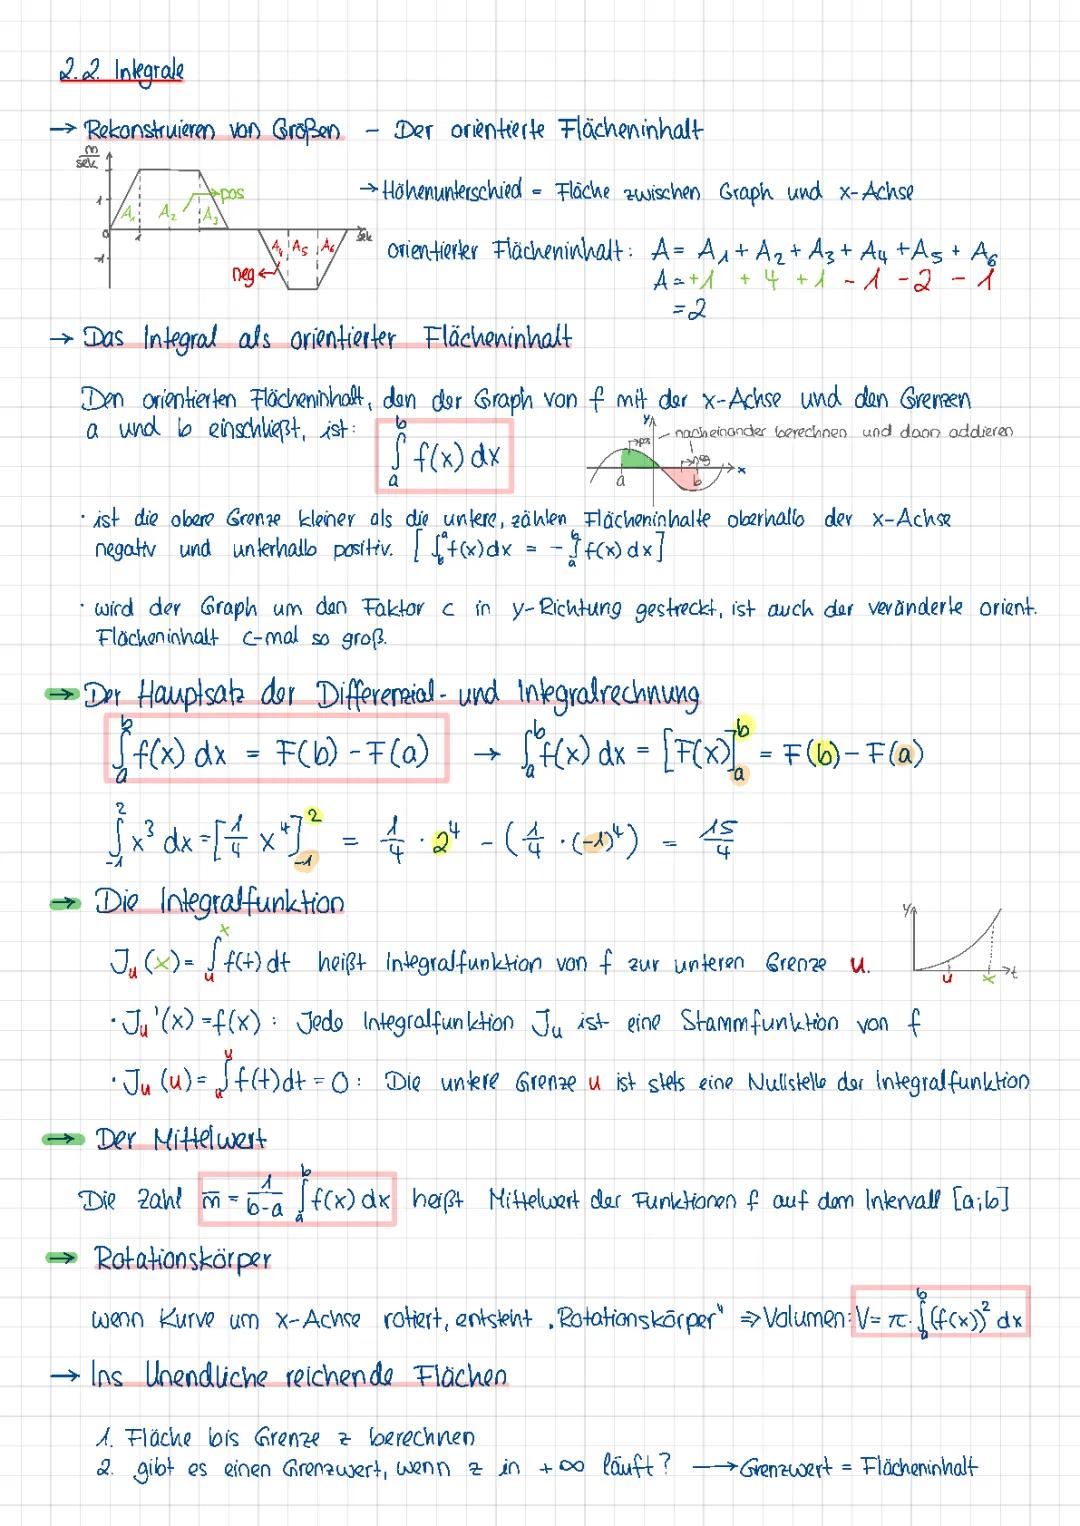 2.2. Integrale
→ Rekonstruieren von Größen - Der orientierte Flächeninhalt
m/sek
1
A₁ A₂ A₃ pos
→ Höhenunterschied = Fläche zwischen Graph und x-Achse
0 1 sek
-1
A₄ A₅ A₆
neg
orientierter Flächeninhalt: A = A₁ + A₂ + A₃ + A₄ + A₅ + A₆
A = +1 + 4 + 1 - 1 - 2 - 1
= 2
→ Das Integral als orientierter Flächeninhalt
Den orientierten Flächeninhalt, den der Graph von f mit der x-Achse und den Grenzen
a und b einschließt, ist: ∫ₐᵇ f(x) dx
y pos nacheinander berechnen und dann addieren
neg x
a b
· ist die obere Grenze kleiner als die untere, zählen Flächeninhalte oberhalb der x-Achse
negativ und unterhalb positiv. [ ∫_b^a f(x) dx = - ∫_a^b f(x) dx ]
· wird der Graph um den Faktor c in y-Richtung gestreckt, ist auch der veränderte orient.
Flächeninhalt c-mal so groß.
→ Der Hauptsatz der Differenzial- und Integralrechnung
∫_a^b f(x) dx = F(b) - F(a) → ∫_a^b f(x) dx = [F(x)]_a^b = F(b) - F(a)
∫_-1^2 x³ dx = [1/4 x⁴]_-1^2 = 1/4 · 2⁴ - (1/4 · (-1)⁴) = 15/4
→ Die Integralfunktion
J_u(x) = ∫_u^x f(t) dt heißt Integralfunktion von f zur unteren Grenze u.
y u x t
· J_u'(x) = f(x) : Jede Integralfunktion J_u ist eine Stammfunktion von f
· J_u(u) = ∫_u^u f(t) dt = 0 : Die untere Grenze u ist stets eine Nullstelle der Integralfunktion
→ Der Mittelwert
Die Zahl m̅ = 1/(b-a) ∫_a^b f(x) dx heißt Mittelwert der Funktionen f auf dem Intervall [a;b]
→ Rotationskörper
wenn Kurve um x-Achse rotiert, entsteht „Rotationskörper“ ⇒ Volumen: V = π · ∫_a^b (f(x))² dx
→ Ins Unendliche reichende Flächen
1. Fläche bis Grenze z berechnen
2. gibt es einen Grenzwert, wenn z in +∞ läuft? → Grenzwert = Flächeninhalt